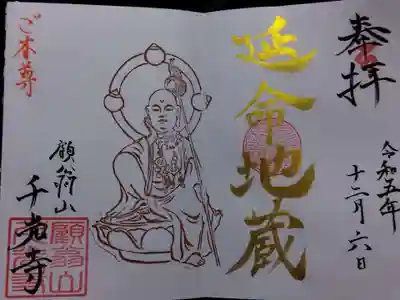 奉拝
令和五年
十二月六日
延命地蔵
ご本尊
願翁山
千光寺